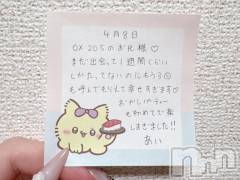 4月8日
0X20Sのお兄様♡
まだ出会って1週間くらい
しかたってないのにもう3回
も呼んでもらえて幸せすぎます♡
おかしパーティー
も初めてで楽
しすぎました!!
あい